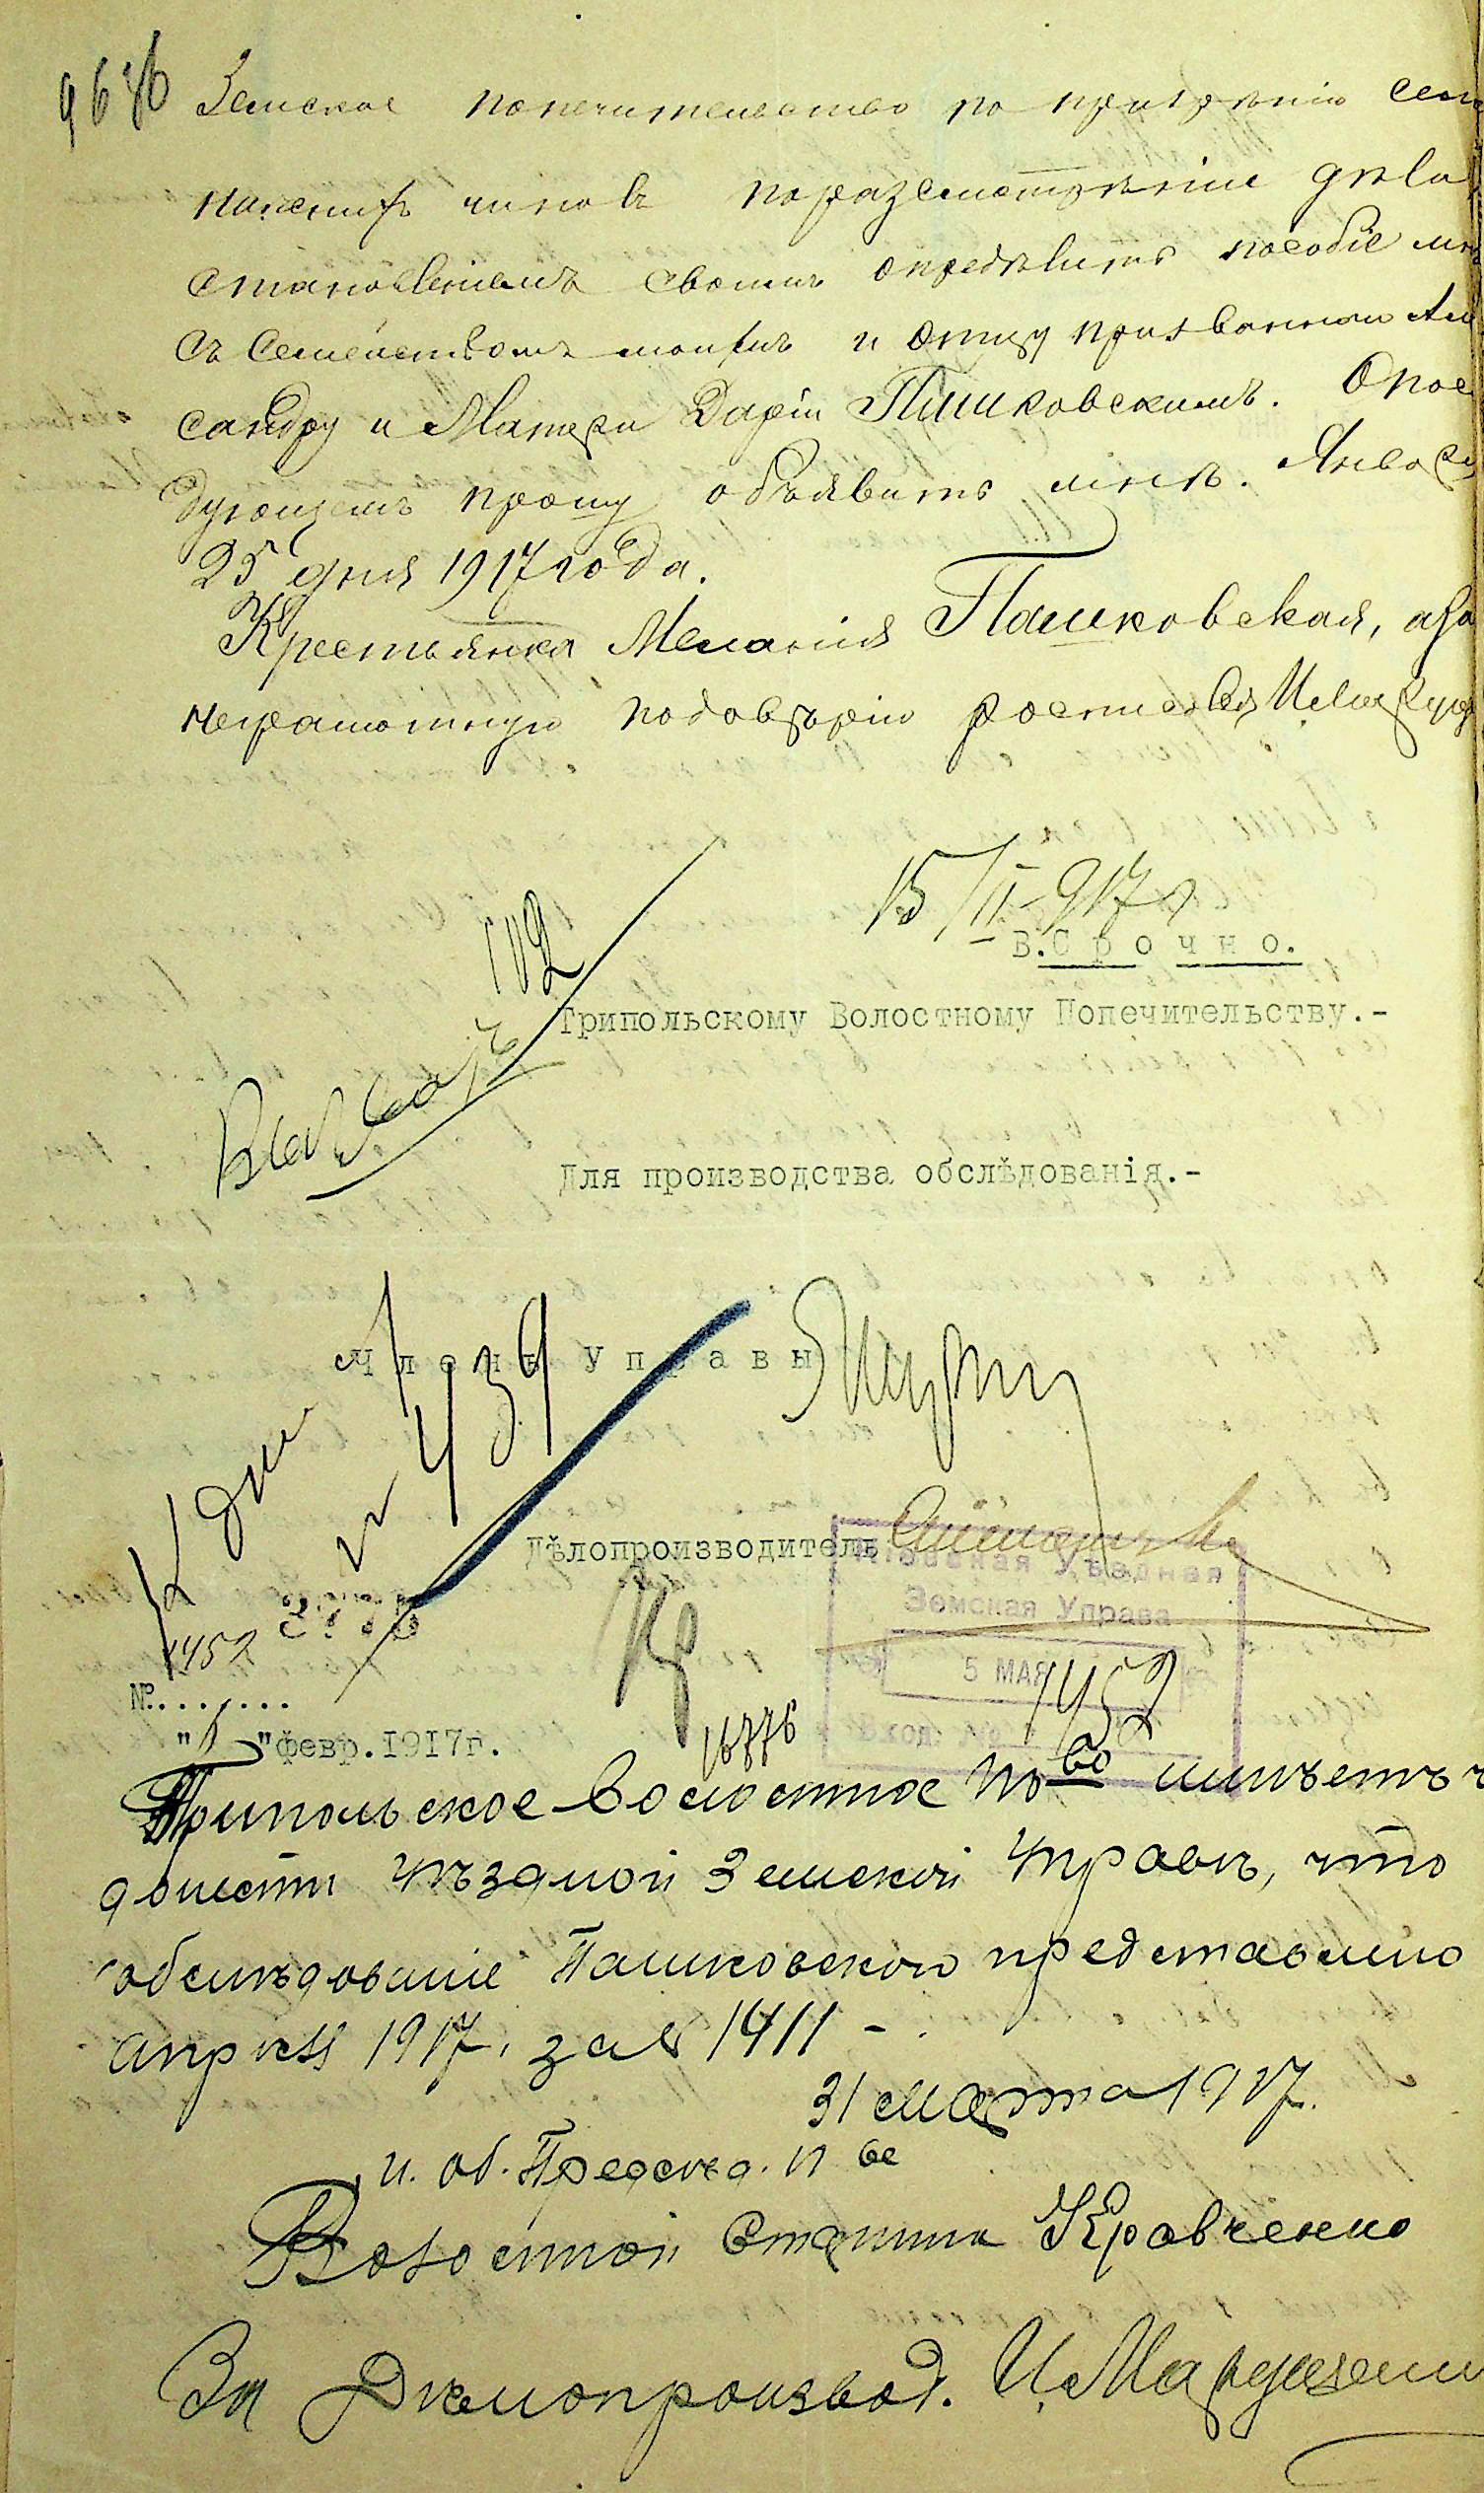 9676
Земское попечительство по призрѣнію сем
нижних чиновъ по разсмотрѣніи дѣла
становленіемъ своимъ опредѣлить пособіе мнѣ
съ Семействомъ моимъ и Отцу призванного Алек
сандру и Матери Даріи Пашковскимъ. О пос
дующемъ прошу объявить мнѣ. Января
25 дня 1917 года.
Крестьянка Меланія Пашковская, а за
неграмотную по довѣрію росписался
15/II 917 г
В. Срочно.
102
Трипольскому Волостному Попечительству.-
Для производства обслѣдованія.-
Членъ Управы
К дѣлу
№ 439
Дѣлопроизводитель
Кіевская Уѣздная
Земская Управа
5 МАЯ
Вход. №
1452
1452
№......
"феврˌ.1917г.
16776
Трипольское Волостное По-во имѣетъ ч
донести Уѣздной Земской Управѣ, что
обслѣдованіе Пашковской представлено
апрѣля 1917, за № 1411 -.
31 Марта 1917.
и. об. Предсѣд. П-ва
Волостной Старшина Кравченко
За Дѣлопроизвод.